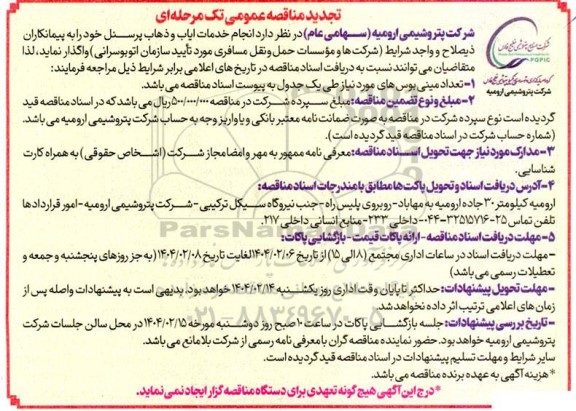 تجدید مناقصه عمومی تک مرحله‌ای
شرکت پتروشیمی ارومیه (سهامی عام) در نظر دارد انجام خدمات ایاب و ذهاب پرسنل خود را به پیمانکاران
ذیصلاح و واجد شرایط (شرکت‌ها و مؤسسات حمل و نقل مسافری مورد تأیید سازمان اتوبوسرانی) واگذار نماید، لذا
متقاضیان می‌توانند نسبت به دریافت اسناد مناقصه در تاریخ های اعلامی برابر شرایط ذیل مراجعه فرمایند:
۱-تعداد مینی بوس های مورد نیاز طی یک جدول به پیوست اسناد مناقصه می باشد.
۲-مبلغ و نوع تضمین مناقصه: مبلغ سپرده شرکت در مناقصه ۵۰۰/۰۰۰/۰۰۰ ریال می باشد که در اسناد مناقصه قید
گردیده است نوع سپرده شرکت در مناقصه به صورت ضمانت نامه معتبر بانکی و یا واریز وجه به حساب شرکت پتروشیمی ارومیه می باشد.
(شماره حساب شرکت در اسناد مناقصه قید گردیده است).
۳-مدارک مورد نیاز جهت تحویل اسناد مناقصه: معرفی نامه ممهور به مهر و امضا مجاز شرکت (اشخاص حقوقی) به همراه کارت
شناسایی.
۴-آدرس دریافت اسناد و تحویل پاکت‌ها مطابق با مندرجات اسناد مناقصه:
ارومیه کیلومتر ۳۰ جاده ارومیه به مهاباد-روبروی پلیس راه-جنب نیروگاه سیکل ترکیبی-شرکت پتروشیمی ارومیه-امور قراردادها
تلفن تماس ۲۵-۳۲۵۱۵۷۱۶-۰۴۴ داخلی ۲۳۳-منابع انسانی داخلی ۲۱۷.
۵-مهلت دریافت اسناد مناقصه-ارائه پاکات قیمت-بازگشایی پاکات:
-مهلت دریافت اسناد در ساعات اداری مجتمع (۸ الی ۱۵) از تاریخ ۱۴۰۴/۰۲/۰۶ لغایت تاریخ ۱۴۰۴/۰۲/۰۸ (به جز روزهای پنجشنبه و جمعه و
تعطیلات رسمی می باشد)
-مهلت تحویل پیشنهادات: حداکثر تا پایان وقت اداری روز یکشنبه ۱۴۰۴/۰۲/۱۴ خواهد بود. بدیهی است به پیشنهادات واصله پس از
زمان های اعلامی ترتیب اثر داده نخواهد شد.
-تاریخ بررسی پیشنهادات: جلسه بازگشایی پاکات در ساعت ۱۰ صبح روز دوشنبه مورخه ۱۴۰۴/۰۲/۱۵ در محل سالن جلسات شرکت
پتروشیمی ارومیه خواهد بود. حضور نماینده مناقصه گران با معرفی نامه رسمی از شرکت بلامانع می باشد.
سایر شرایط و مهلت تسلیم پیشنهادات در اسناد مناقصه قید گردیده است.
*هزینه آگهی به عهده برنده مناقصه می باشد.
*درج این آگهی هیچ گونه تعهدی برای دستگاه مناقصه گزار ایجاد نمی نماید.*
PGPIC
شرکت پتروشیمی ارومیه
ParsNamadData
۰۲۱-۸۸۳۴۹۶۷۰-۵